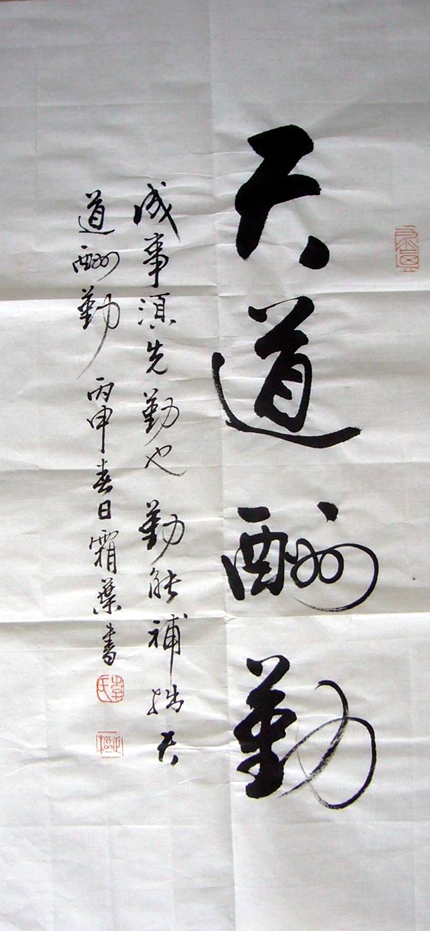 天道酬勤
成事须先勤也勤能補拙天
道酬勤 丙申春日霜葉书